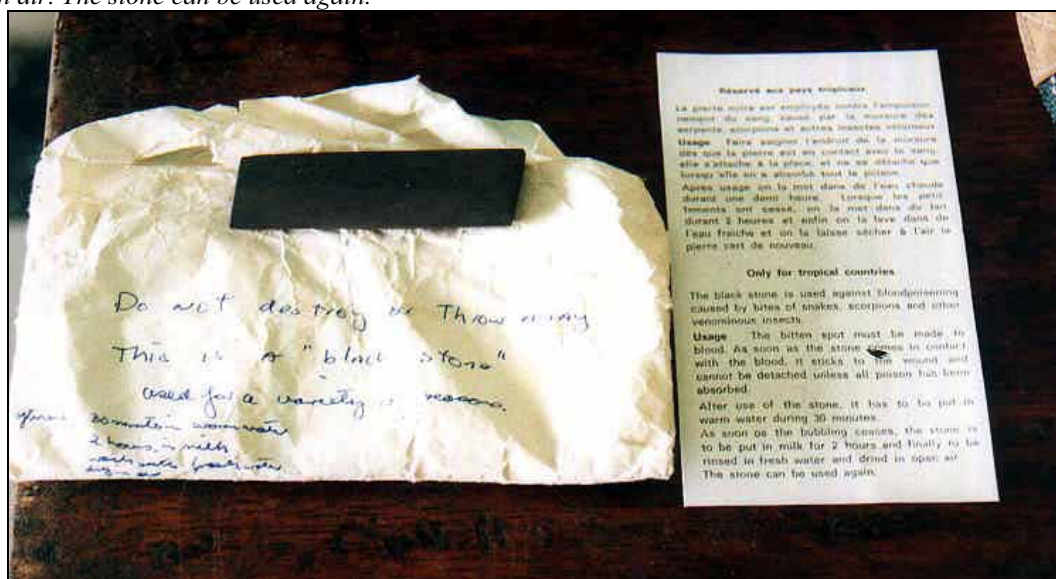 n air. The stone can be used again.
Do not destroy or Throw away
This is a "black stone"
used for a variety of reasons.
30 minutes in warm water
2 hours in milk
wash with fresh water
Réservé aux pays tropicaux
La pierre noire est employée contre l'empoison-
nement du sang, causé par la morsure des
serpents, scorpions et autres insectes vénimeux
Usage Faire saigner l'endroit de la morsure
dès que la pierre est en contact avec le sang,
elle s'attache à la place, et ne se détache que
lorsqu'elle en a absorbé tout le poison.
Après usage on la met dans de l'eau chaude
durant une demi heure. Lorsque les petil-
lements ont cessé, on la met dans du lait
durant 2 heures et enfin on la lave dans de
l'eau fraiche et on la laisse sécher à l'air la
pierre sert de nouveau.
Only for tropical countries
The black stone is used against bloodpoisening
caused by bites of snakes, scorpions and other
venominous insects.
Usage The bitten spot must be made to
blood. As soon as the stone comes in contact
with the blood, it sticks to the wound and
cannot be detached unless all poison has been
absorbed.
After use of the stone, it has to be put in
warm water during 30 minutes.
As soon as the bubbling ceases, the stone is
to be put in milk for 2 hours and finally to be
rinsed in fresh water and dried in open air.
The stone can be used again.